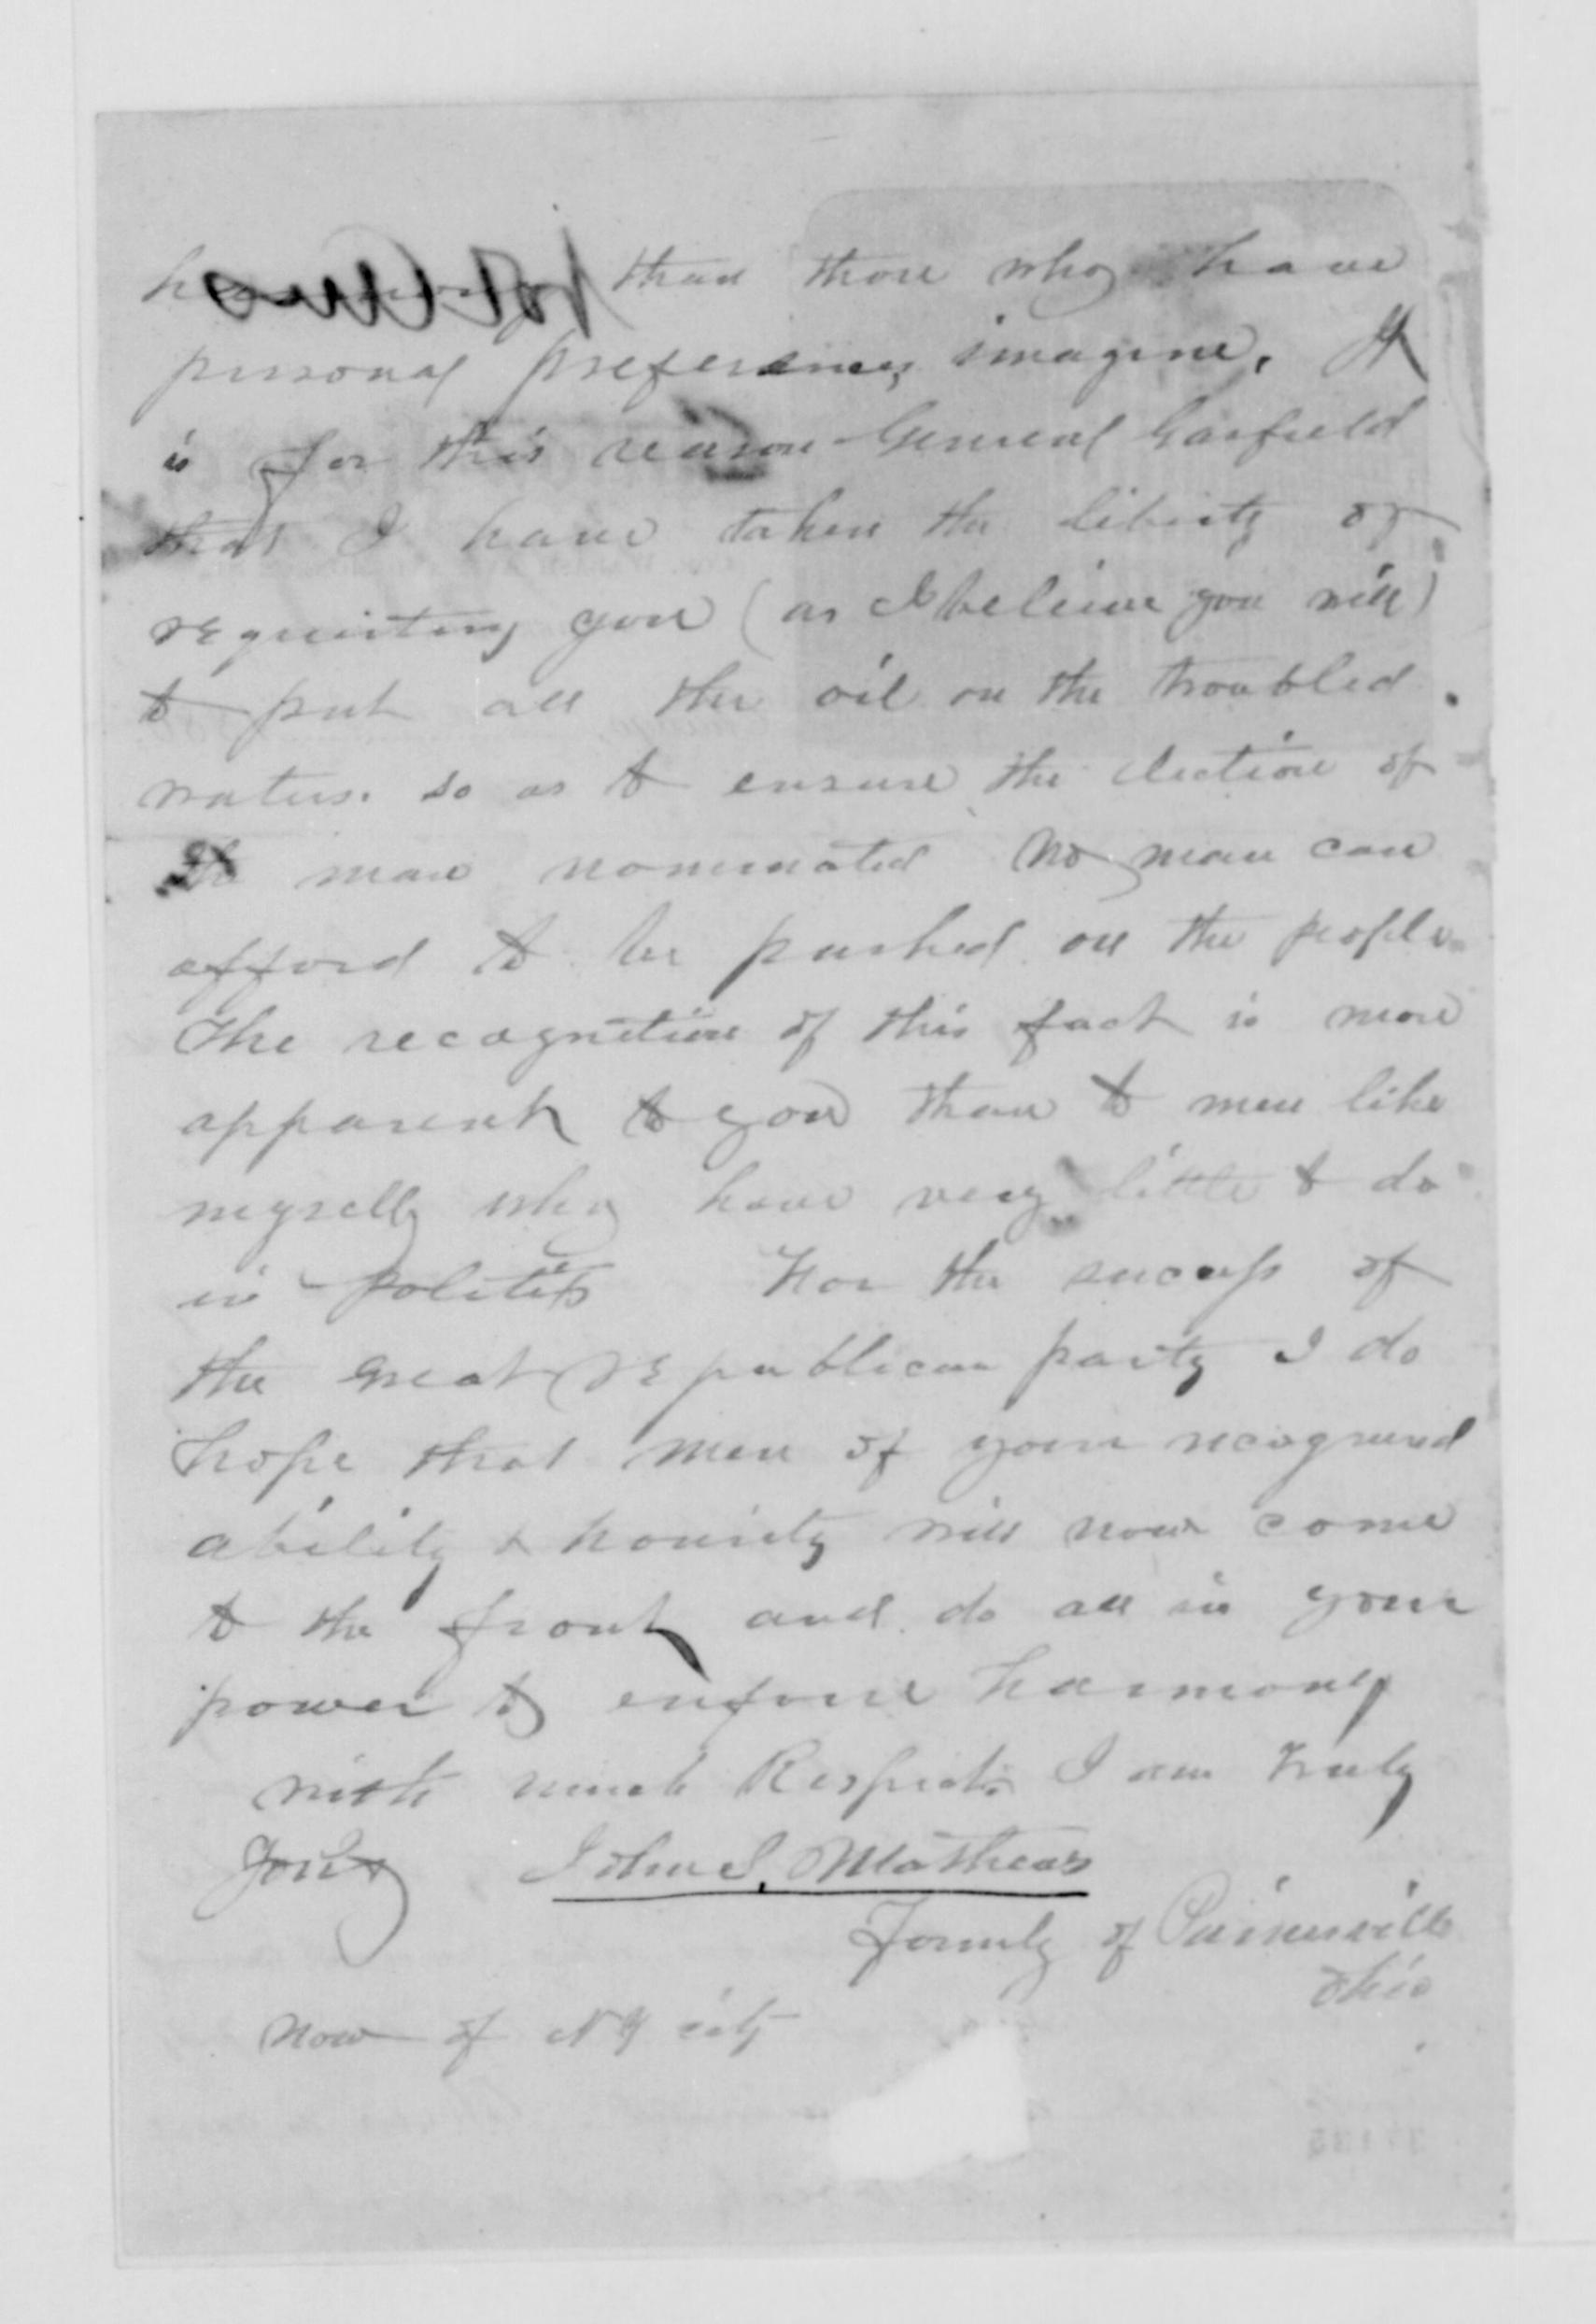 than those who have
personal preferences imagine. It
is for this reason General Garfield
that I have taken the liberty of
requesting you (as I believe you will)
to put all the oil on the troubled
waters. so as to ensure the election of
the man nominated No man can
afford to be pushed on the people.
The recognition of this fact is more
apparent to you than to men like
myself who have very little to do
in politics For the success of
the great republican party I do
hope that men of your recognized
ability & honesty will now come
to the front and do all in your
power to enforce harmony
with much Respect I am truly
Yours John S. Mathews
Formerly of Painesville
Ohio
now of NY city